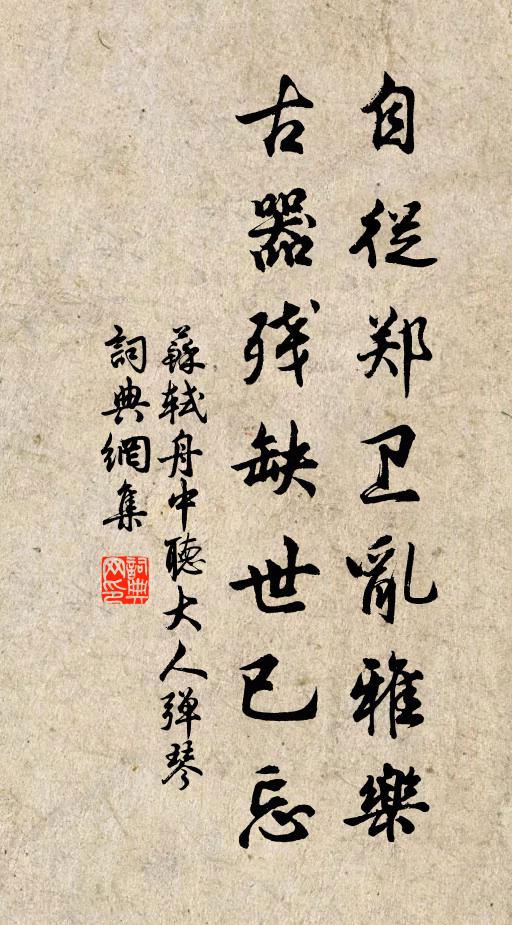 自從郑卫亂雅樂
古器残缺世已忘
蘇轼舟中聽大人弹琴
詞典網集
詞典网印